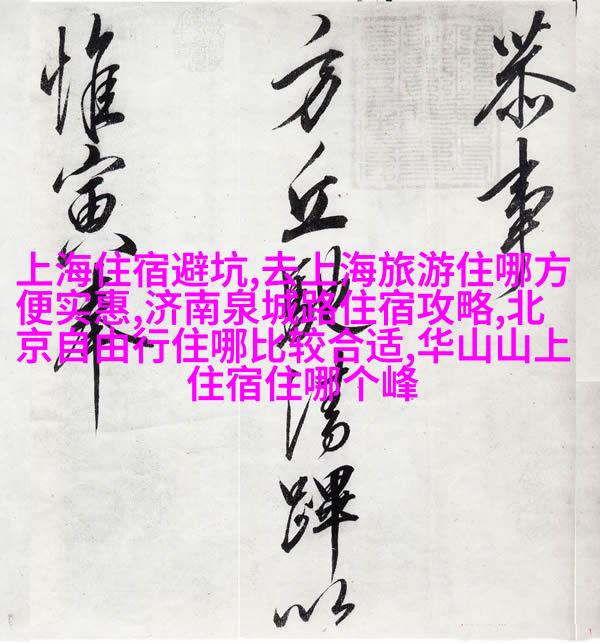 恭事
方丘清蹕以
惟寅奉
上海住宿避坑,去上海旅游住哪方
便实惠,济南泉城路住宿攻略,北
京自由行住哪比较合适,华山山上
住宿住哪个峰